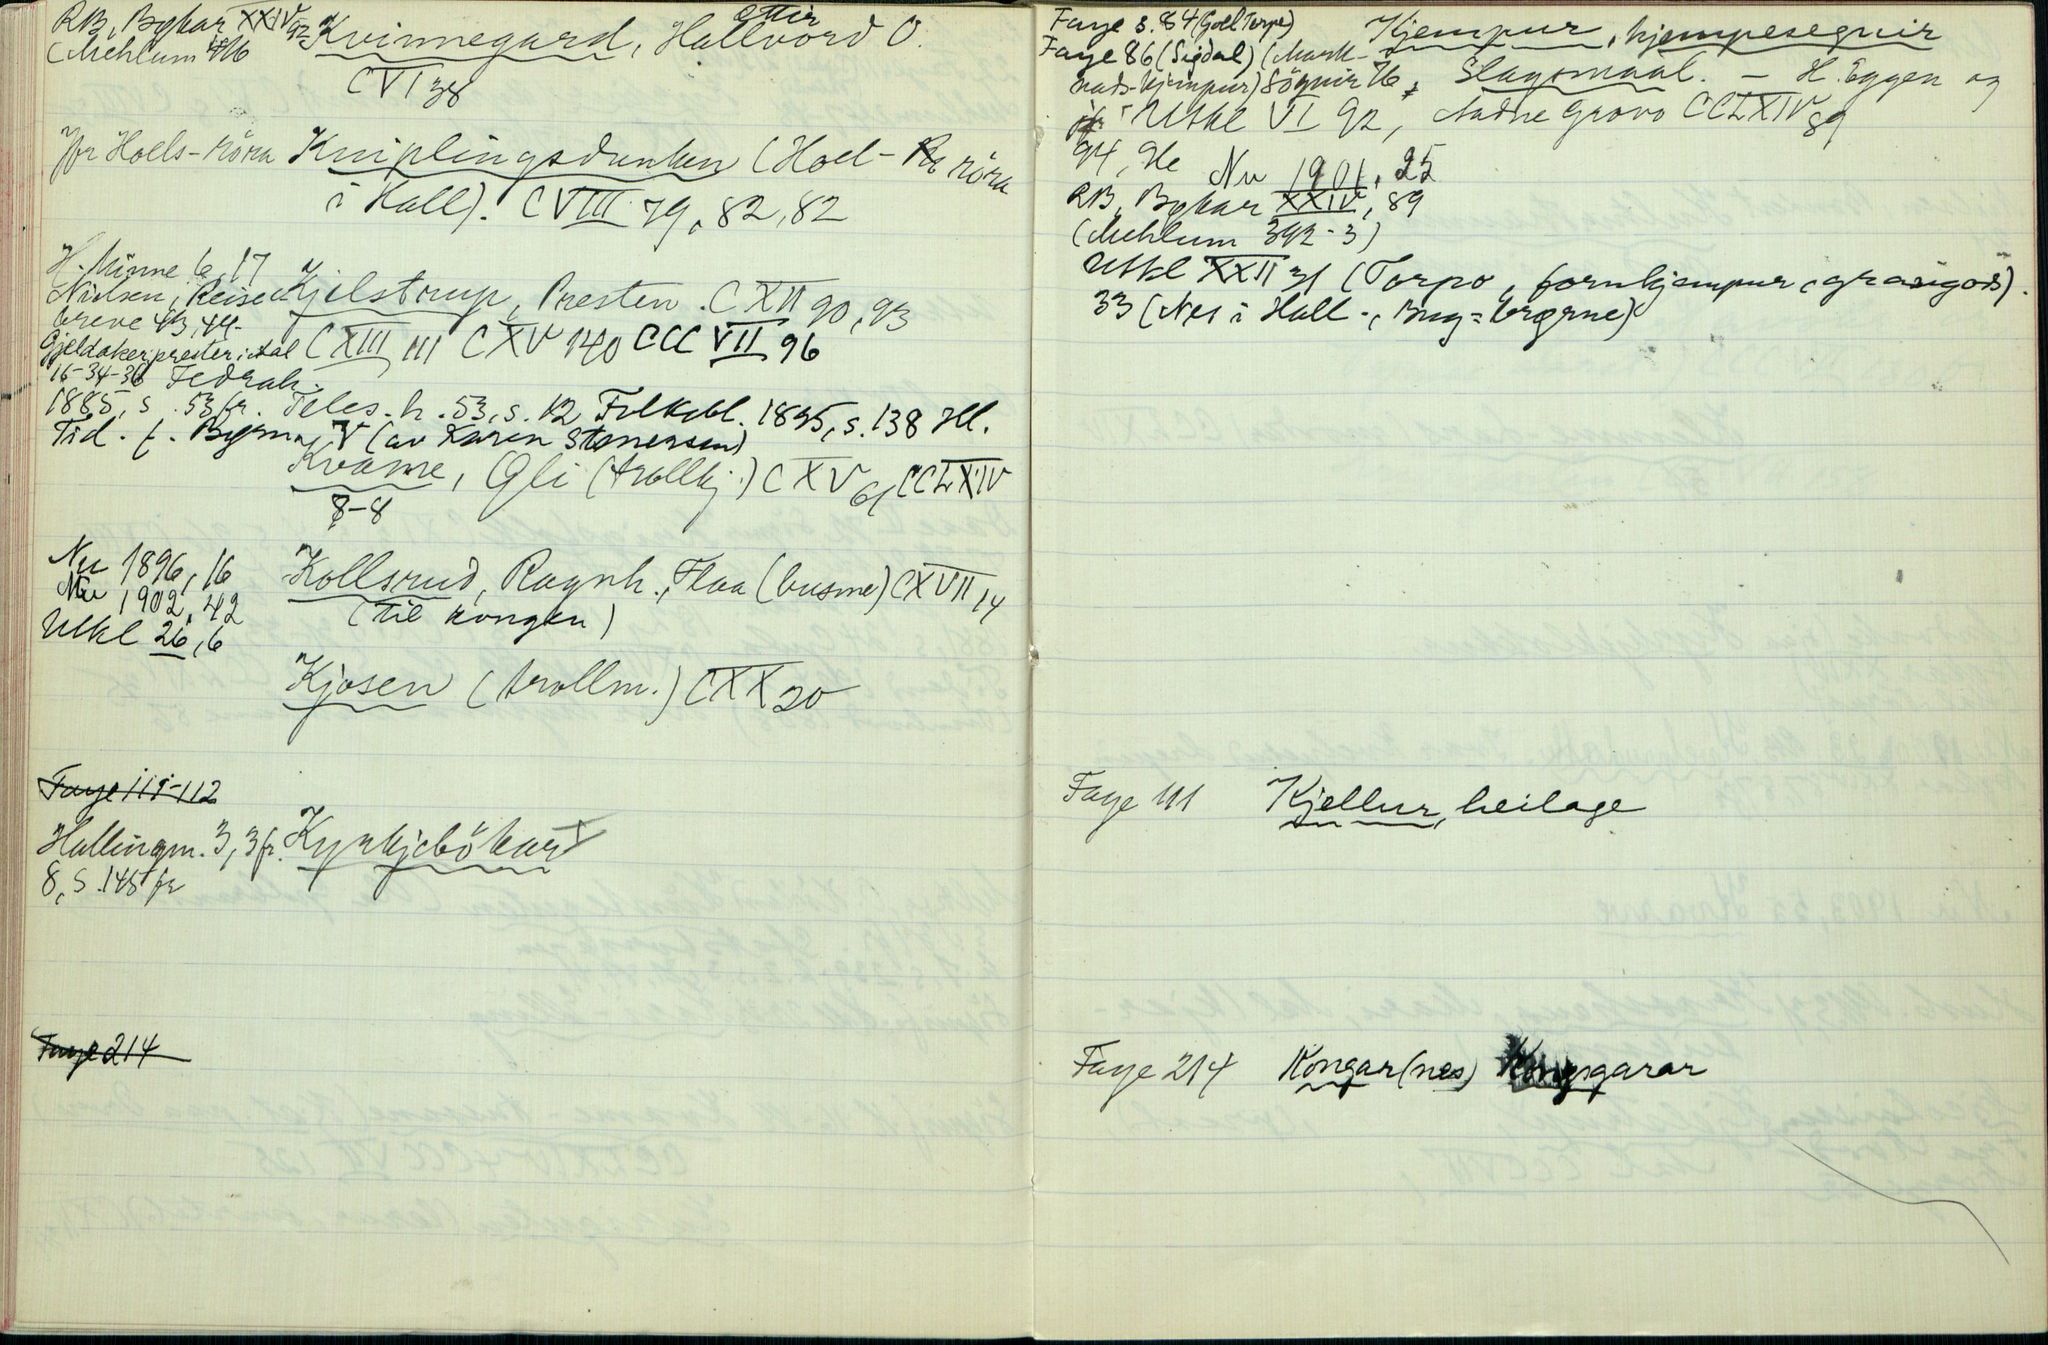 RB, Bygkar XXIV 92 Kvinnegard, ettir Hallvord O.
(Mehlum 416
CVI 38
Jfr Hoels-röra Kniplingsdunken (Hoel- röra
i Hall). CVIII 79, 82, 82
H. Minne 6, 17
Nielsen, Reise- Kjelstrup, Presten. CXII 90, 93
breve 43, 44.
Gjeldaker, prester i Aal CXIII 111 CXV 140 CCC VII 96
16-34-36 Fedrah.
1885, s. 53 fr. Teles. h. 53, s. 12 Folkebl. 1895, s. 138 Hl.
Tid. f. Bygm V (av Karen Stenersen)
Kvame, Gli (trollkj.) CXV 61 CCLXIV
8-8
Nu 1896, 16 Kollsrud, Ragnh., Flaa (busme) CXVII 14
Nu 1902, 42 (til kongen)
Utkl 26, 6
Kjosen (trollm.) CXX 20
Faye 111-112
Hallingm. 3, 3 fr. Kyrkjebökar
8, s. 145 fr
Faye 214
Faye s. 84 (Goel Torpe) Kjempur, kjempesegnir
Faye 86 (Sigdal) (Mark-
nads-kjempur) Sögnir 76, Slagsmaal. – H. Eggen og
Utkl VI 92, Andre Grovo CCLXIV 89
94, 96 Nu 1901, 25
RB, Bygkar XXIV, 89
(Mehlum 392-3)
Utkl XXII 31 (Torpo, fornkjempur, gravigods).
33 (Nes i Hall., Bug-brørne)
Faye 111 Kjellur, heilage
Faye 214 Kongar (nes) Kongsgarar